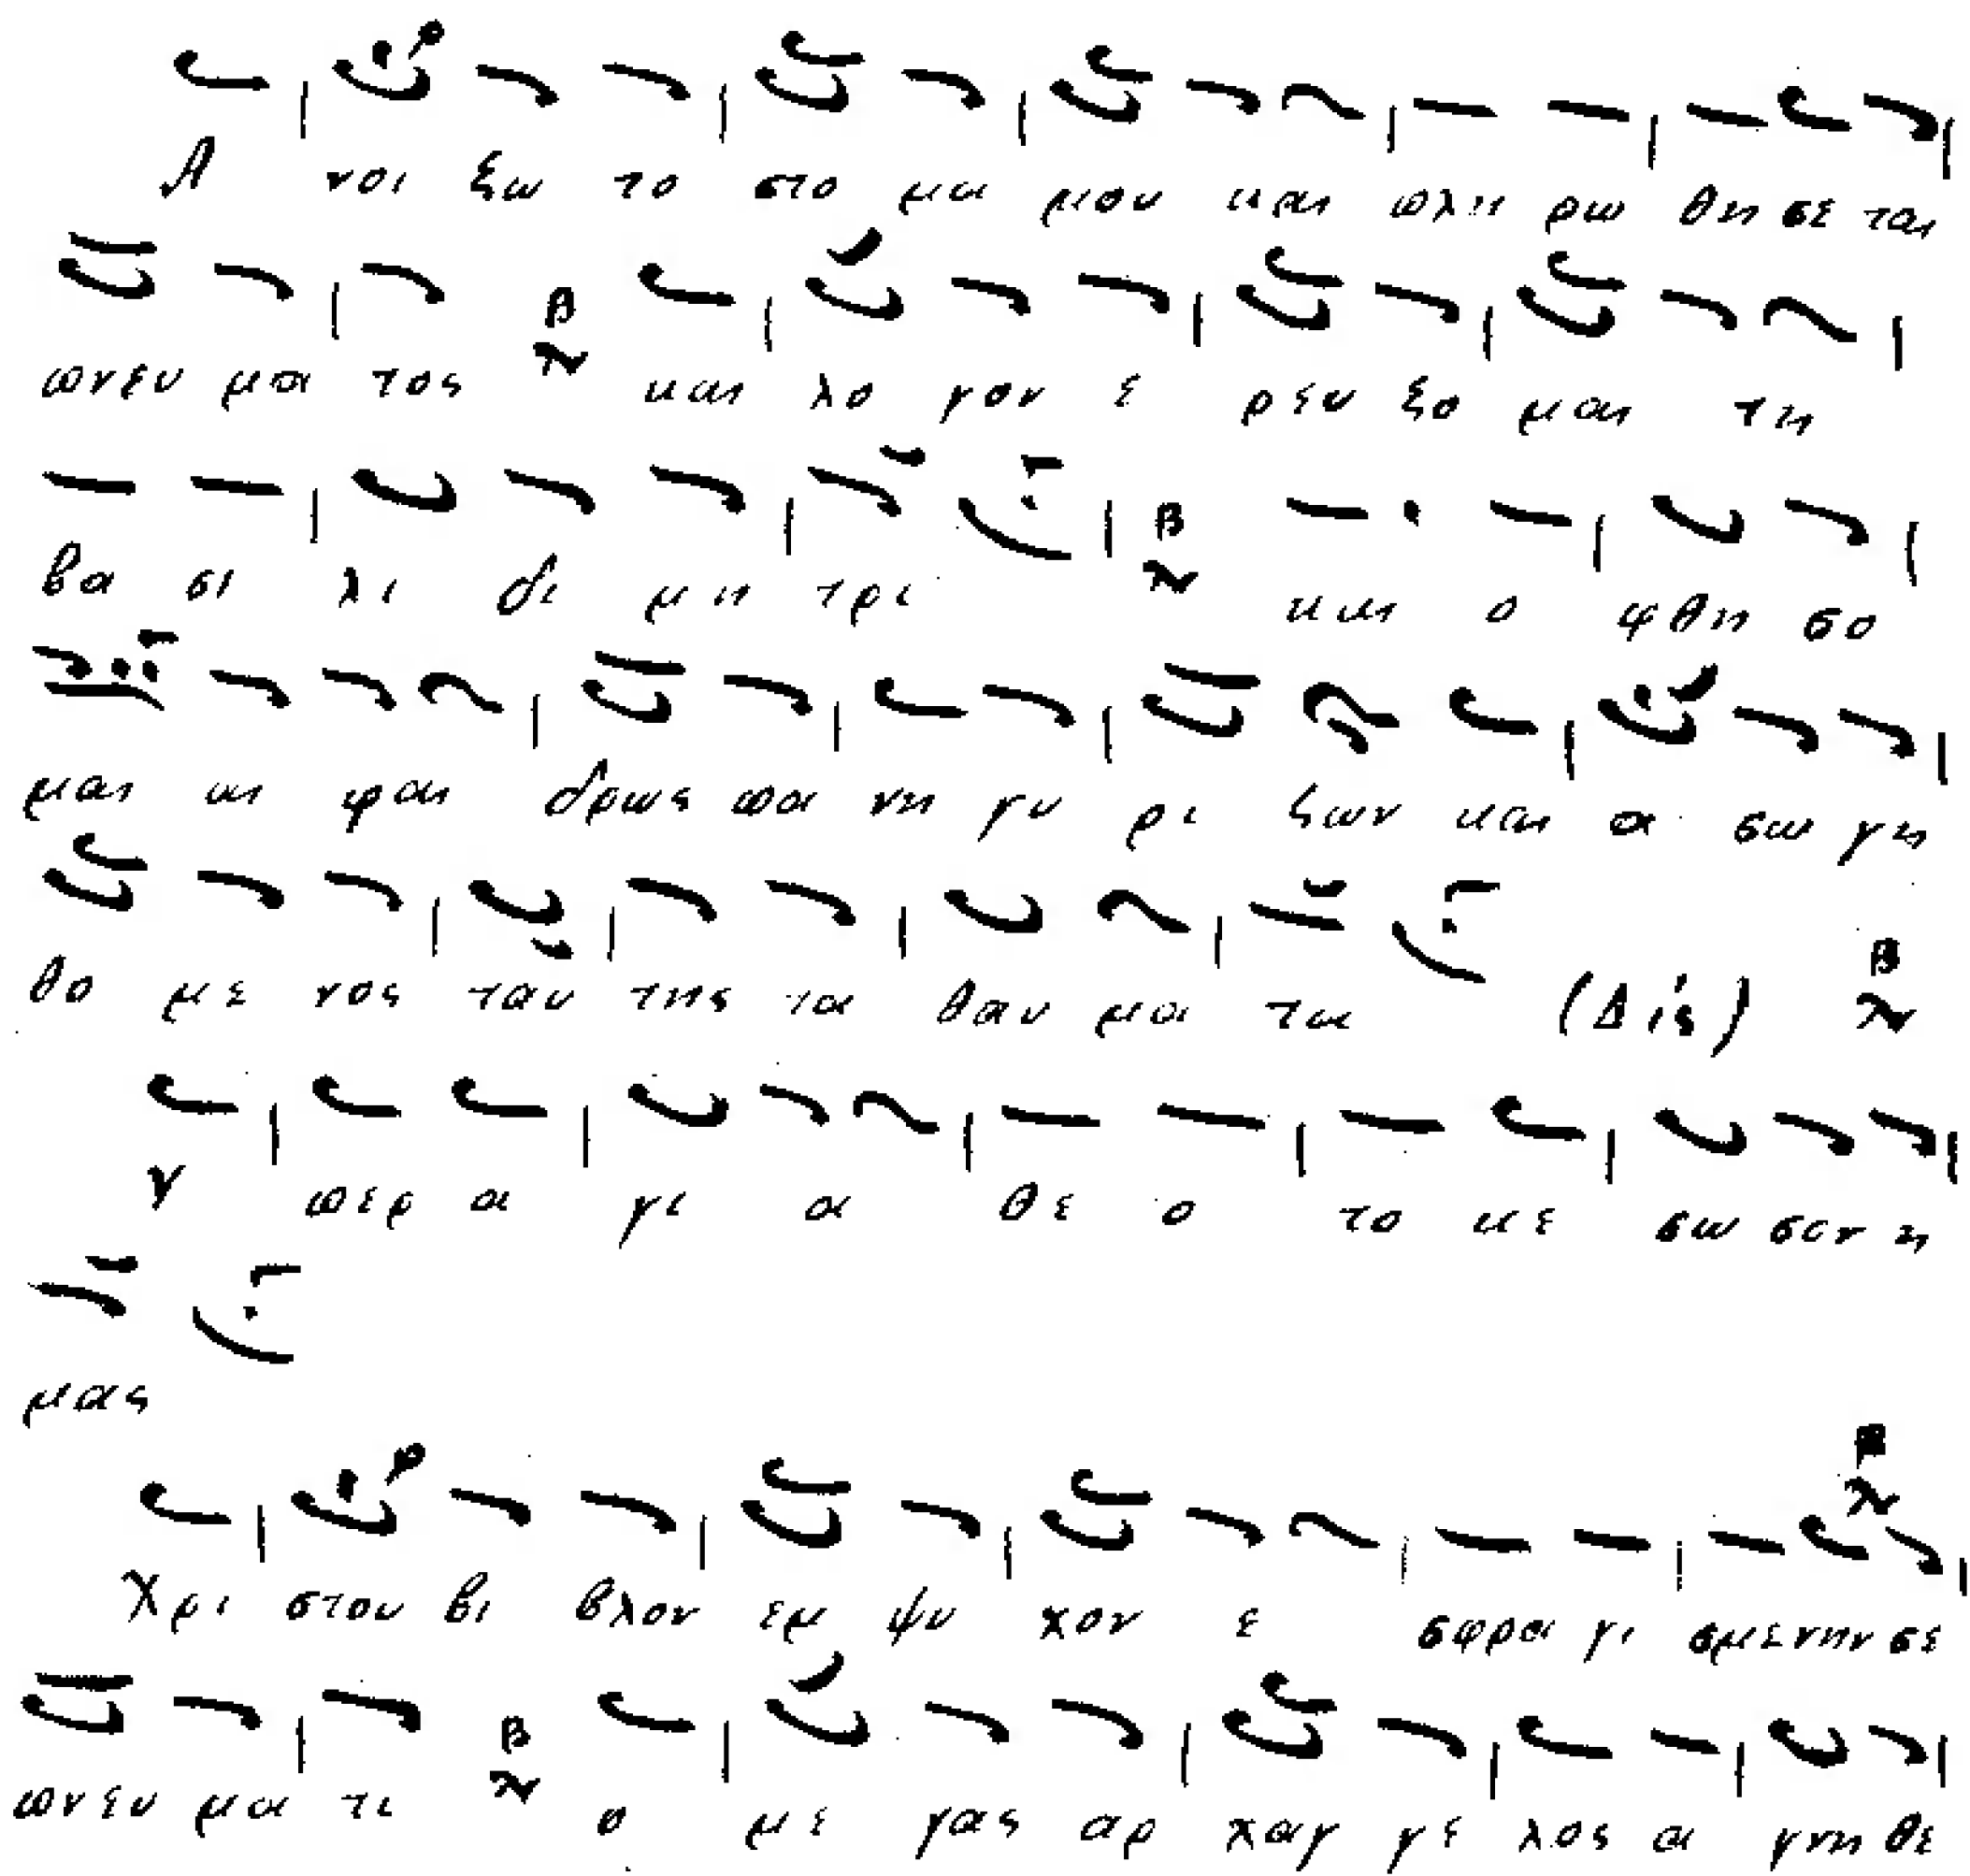 Α νοι ξω το στο μα μου και πλη ρω θη σε ται
πνευ μα τος β και λο γον ε ρευ ξο μαι τη
βα σι λι δι μη τρι β και ο φθη σο
μαι αι φαι δρως πα νη γυ ρι ζων και α σω γη
θο με νος ταυ της τα θαυ μα τα (Δίς) β
Υ περ α γι α θε ο το κε σω σον η
μας
β
Χρι στου βι βλον εμ ψυ χον ε σφρα γι σμενην σε
πνευ μα τι β ο με γας αρ χαγ γε λος α γνη θε